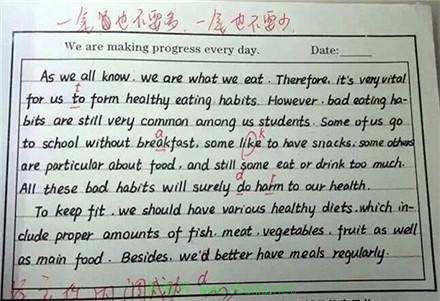 一笔画也不要多，一笔也不要少
We are making progress every day. Date:
As we all know, we are what we eat. Therefore, it's very vital
t
for us to form healthy eating habits. However, bad eating ha-
bits are still very common among us students. Some of us go
a k
to school without breakfast, some like to have snacks, some others
are particular about food, and still some eat or drink too much.
d r
All these bad habits will surely do harm to our health.
To keep fit, we should have various healthy diets, which in-
clude proper amounts of fish, meat, vegetables, fruit as well
as main food. Besides, we'd better have meals regularly.
d